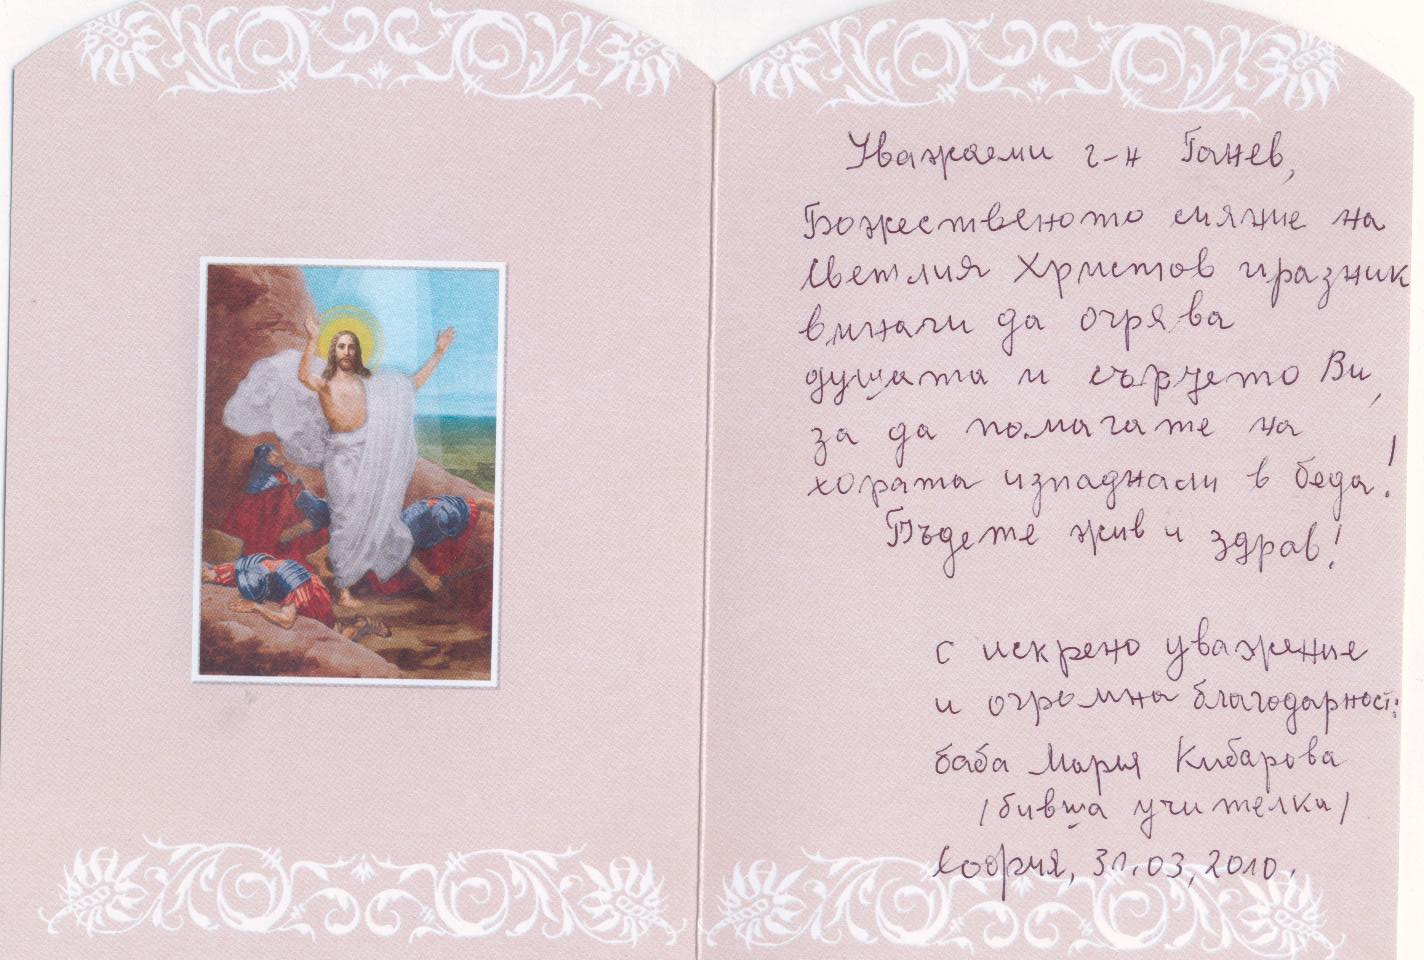 Уважаеми г-н Ганев,
Божественото сияние на
Светлия Христов празник
винаги да огрява
душата и сърцето Ви,
за да помагате на
хората изпаднали в беда!
Бъдете жив и здрав!
с искрено уважение
и огромна благодарност:
баба Мария Кибарова
/бивша учителка/
София, 31.03.2010.